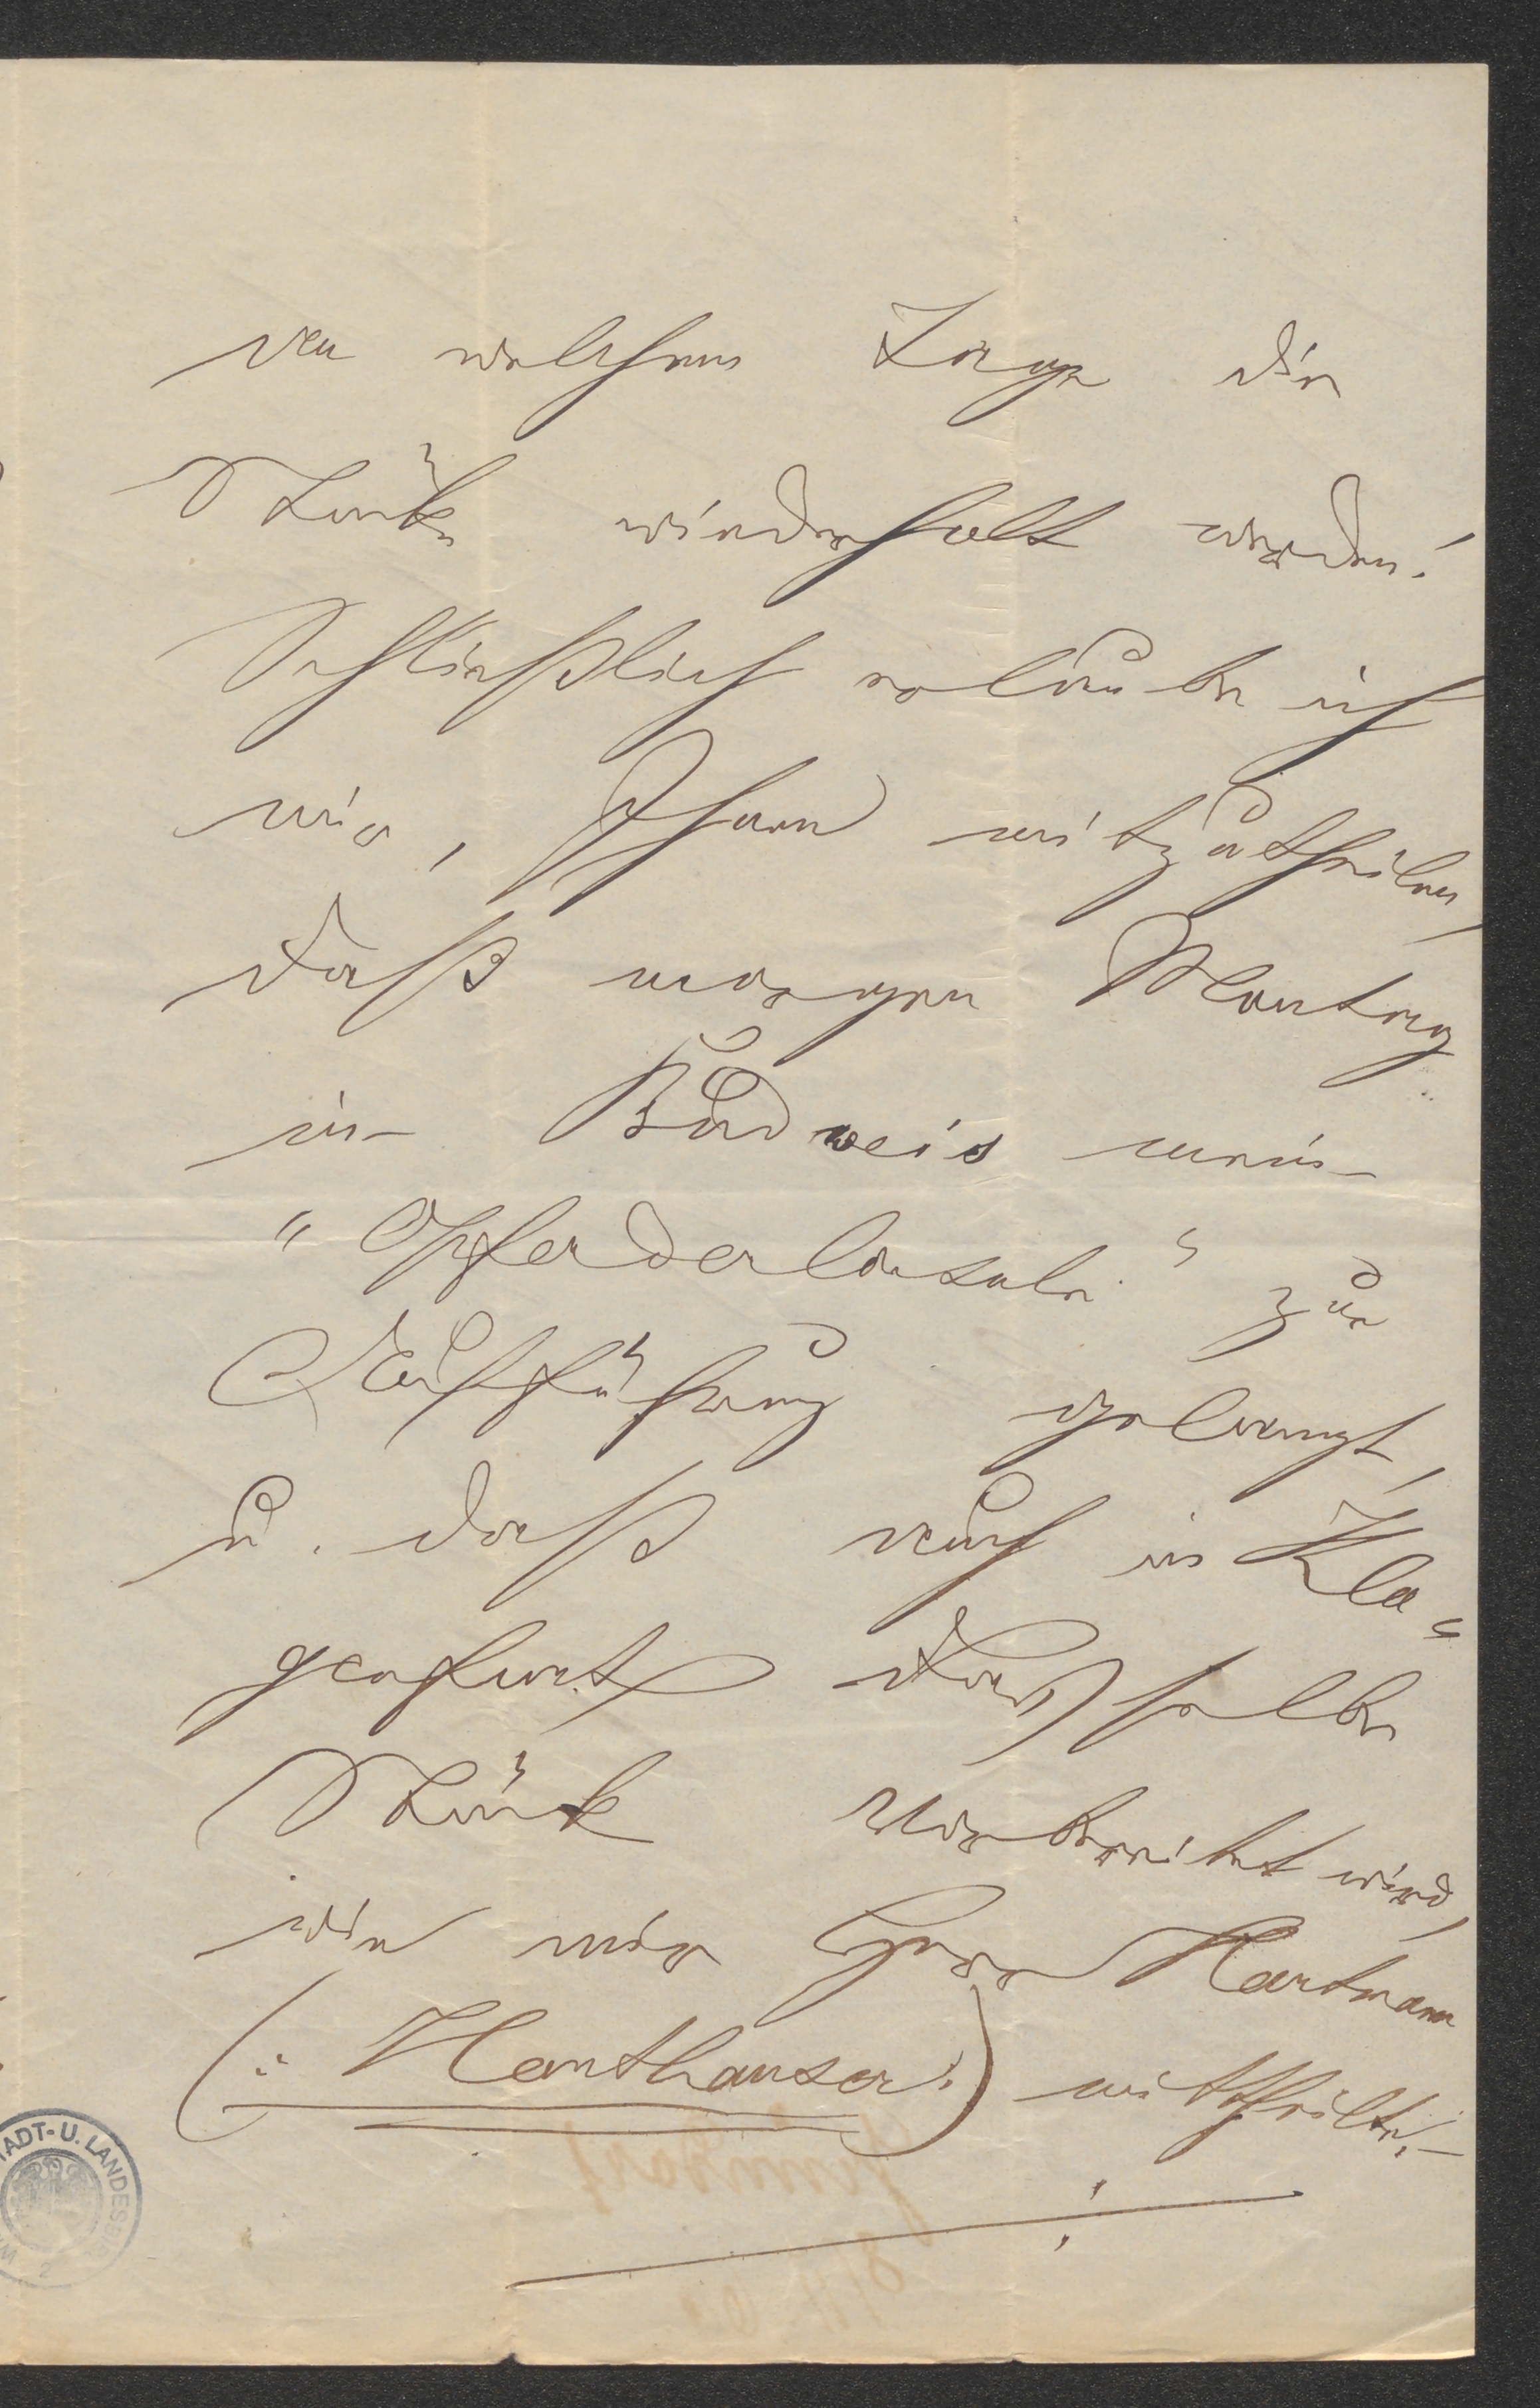 an welchem Tage die
Stücke wiederholt werden!
Schließlich erlaube ich
mir, Ihnen mitzutheilen,
daß morgen Montag
in Budweis mein
"Opfer der Consuln" zur
Aufführung gelangt,
u. daß auch in Kla=
genfurt dasselbe
Stück vorbereitet wird,
wie mir Herr Hartmann
(: Hanthauser :) mittheilte. –
ADT- U. LANDES
2